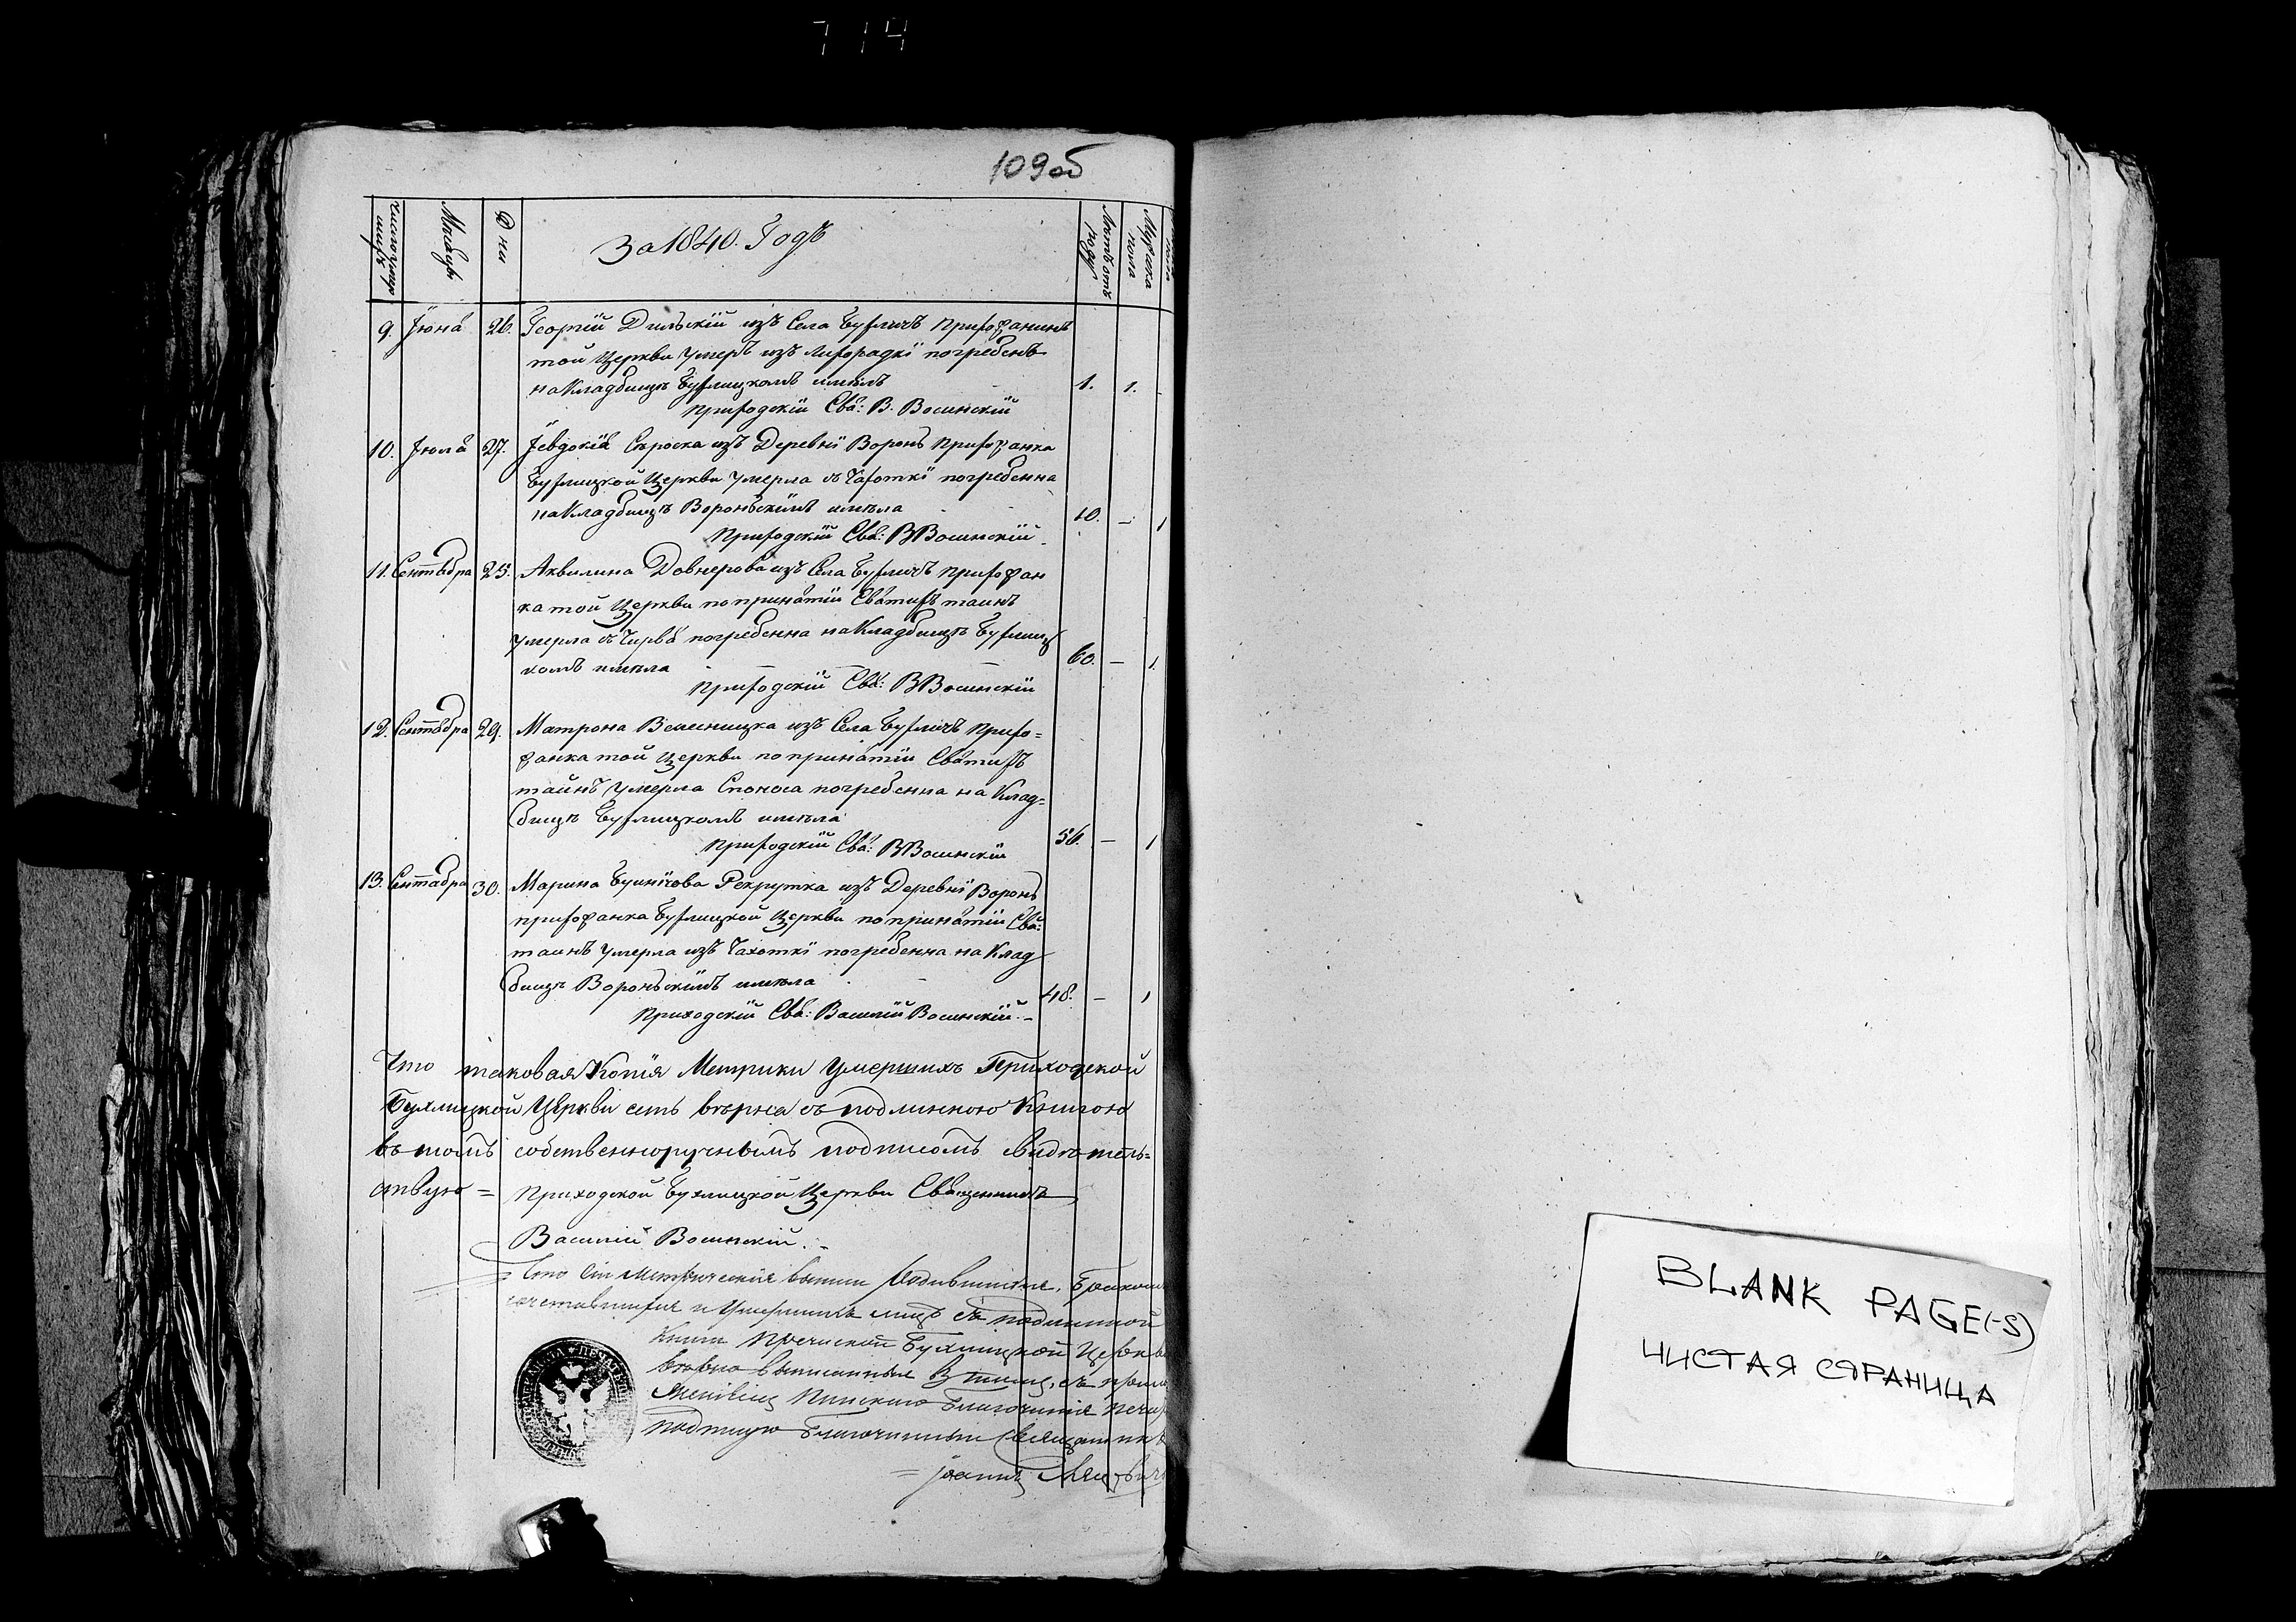 714
109об
Число умершихъ
Мѣсяцъ
Дни
За 1840. Годъ
Лѣтъ отъ роду
Мужска пола
9. Іюня 26. Георгій Дильскій изъ Села Бухличъ Прихожанинъ
той Церкви умеръ изъ лихорадкі погребенъ
на Кладбищѣ Бухлицкомъ имѣлъ 1. 1. -
Приходскій Свя: В. Восинскій
10. Іюля 27. Іевдокія Скроска изъ Деревні Воронь Прихожанка
Бухлицкой Церкви умерла съ Чахоткі погребенна
на Кладбищѣ Вороньскімъ имѣла 10. - 1
Приходскій Свя: ВВосинскій
11. Сентября 25. Аквилина Довнерова изъ Села Бухличъ Прихожан
ка той Церкви по принятіи Святихъ таинъ
умерла съ Чирвя погребенна на Кладбищѣ Бухлиц
комъ имѣла 60. - 1.
Приходскій Свя: ВВосинскій
12. Сентября 29. Матрона Веменицка изъ Села Бухличъ Прихо=
жанка той Церкви по принятіи Святихъ
тайнъ умерла Споноса погребенна на Клад=
бищѣ Бухлицкомъ имѣла 56. - 1
Приходскій Свя: ВВосинскій
13. Сентября 30. Марина Буинічова Рекрутка изъ Деревні Воронь
прихожанка Бухлицкой Церкви по принятіи Свя:
таинъ умерла изъ Чахоткі погребенна на Клад
бищѣ Вороньскімъ имѣла 48. - 1
Приходскій Свя: Василій Восинскій.-
Что таковая Копія Метрики Умершихъ Приходской
Бухлицкой Церкви есть вѣрна съ подлинною Книгою
въ томъ собственноручнымъ подписомъ свидѣтель=
ствую = Приходской Бухлицкой Церкви Священникъ
Василій Восинскій.-
Что сіи метрическіе выписи Родившихся, Бракомъ
сочетавшихся и Умершихъ лицъ съ подлинной
Книги Пречиской Бухлицкой Церкви
вѣрно выписанные въ томъ, съ прило
женіемъ Пинскаго Благочинія печати
подпишу Благочинный Священникъ
= Іоаннъ
BLANK PAGE(-S)
ЧИСТАЯ СТРАНИЦА